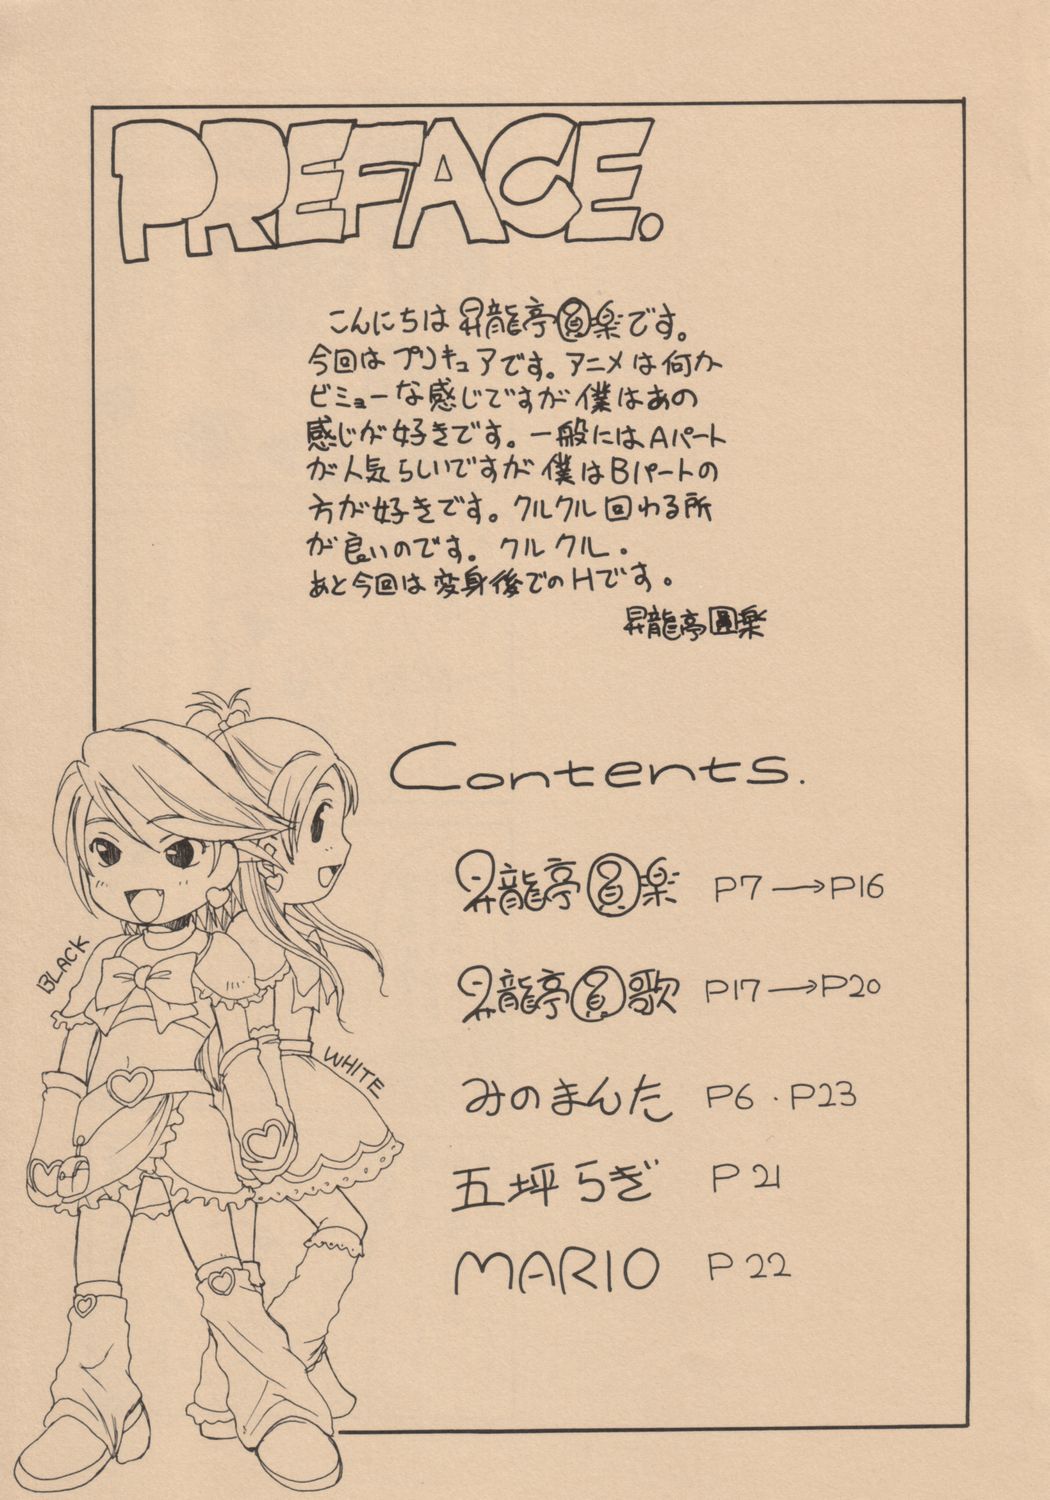 PREFACE.
こんにちは昇龍亭圓楽です。
今回はプリキュアです。アニメは何か
ビミョーな感じですが僕はあの
感じが好きです。一般にはAパート
が人気らしいですが僕はBパートの
方が好きです。クルクル回わる所
が良いのです。クルクル。
あと今回は変身後でのHです。
昇龍亭圓楽
Contents.
昇龍亭圓楽 P7→P16
昇龍亭圓歌 P17→P20
みのまんた P6・P23
五坪らぎ P21
MARIO P22
BLACK
WHITE